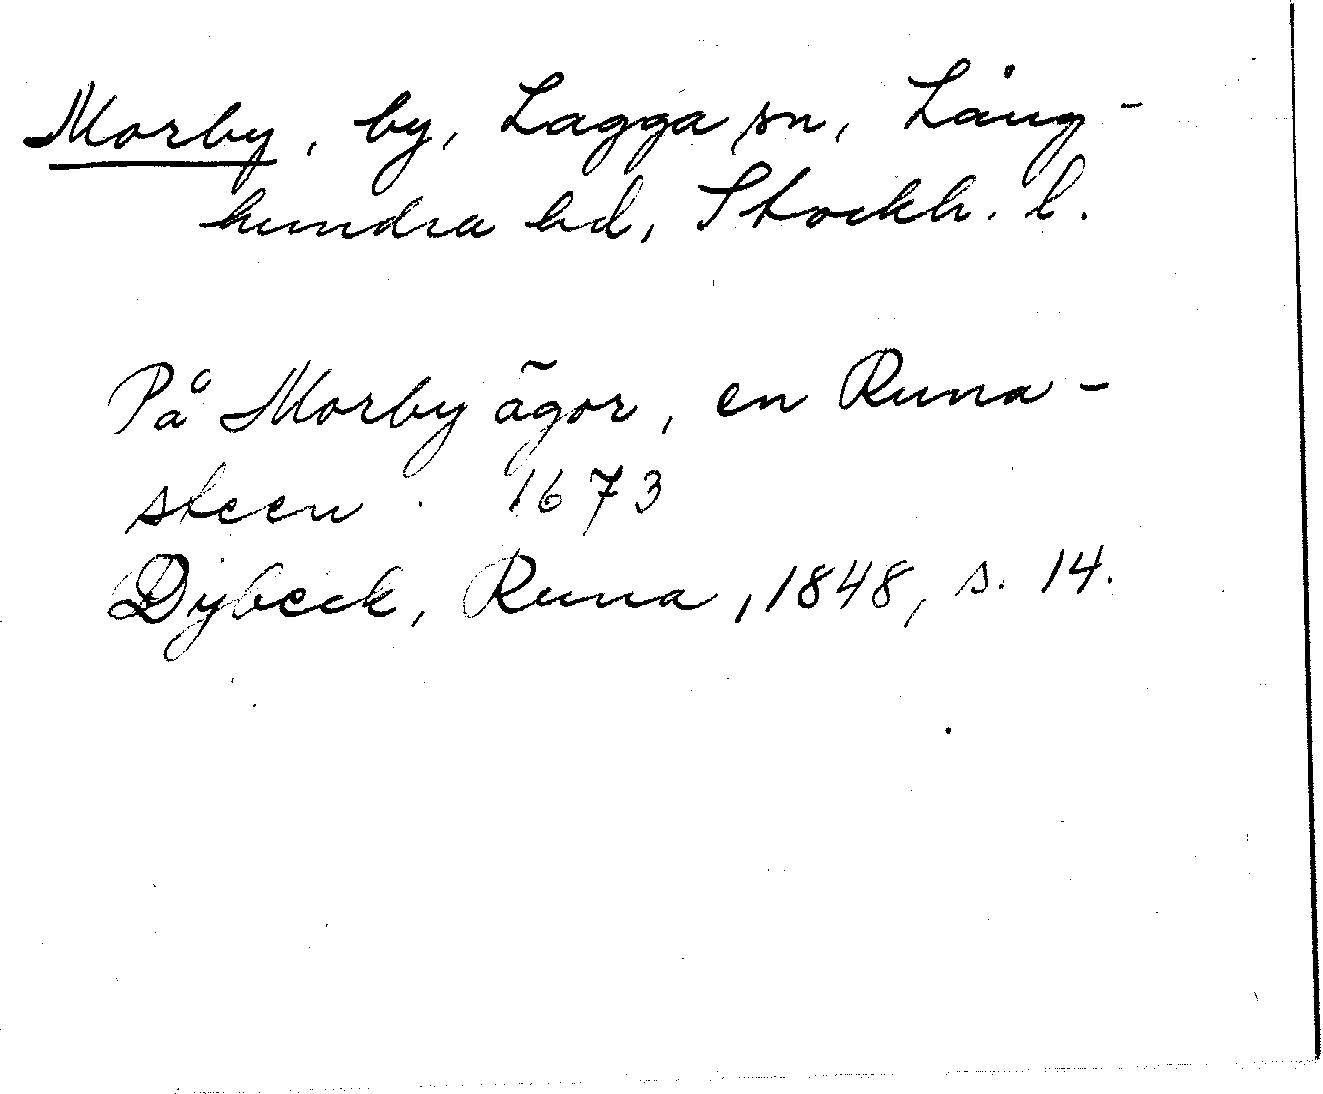 Morby, by, Lagga sn, Lång-
hundra hd, Stockh. l.
På Morby ägor, en Runa-
steen. 1673
Dybeck, Runa, 1848, s. 14.